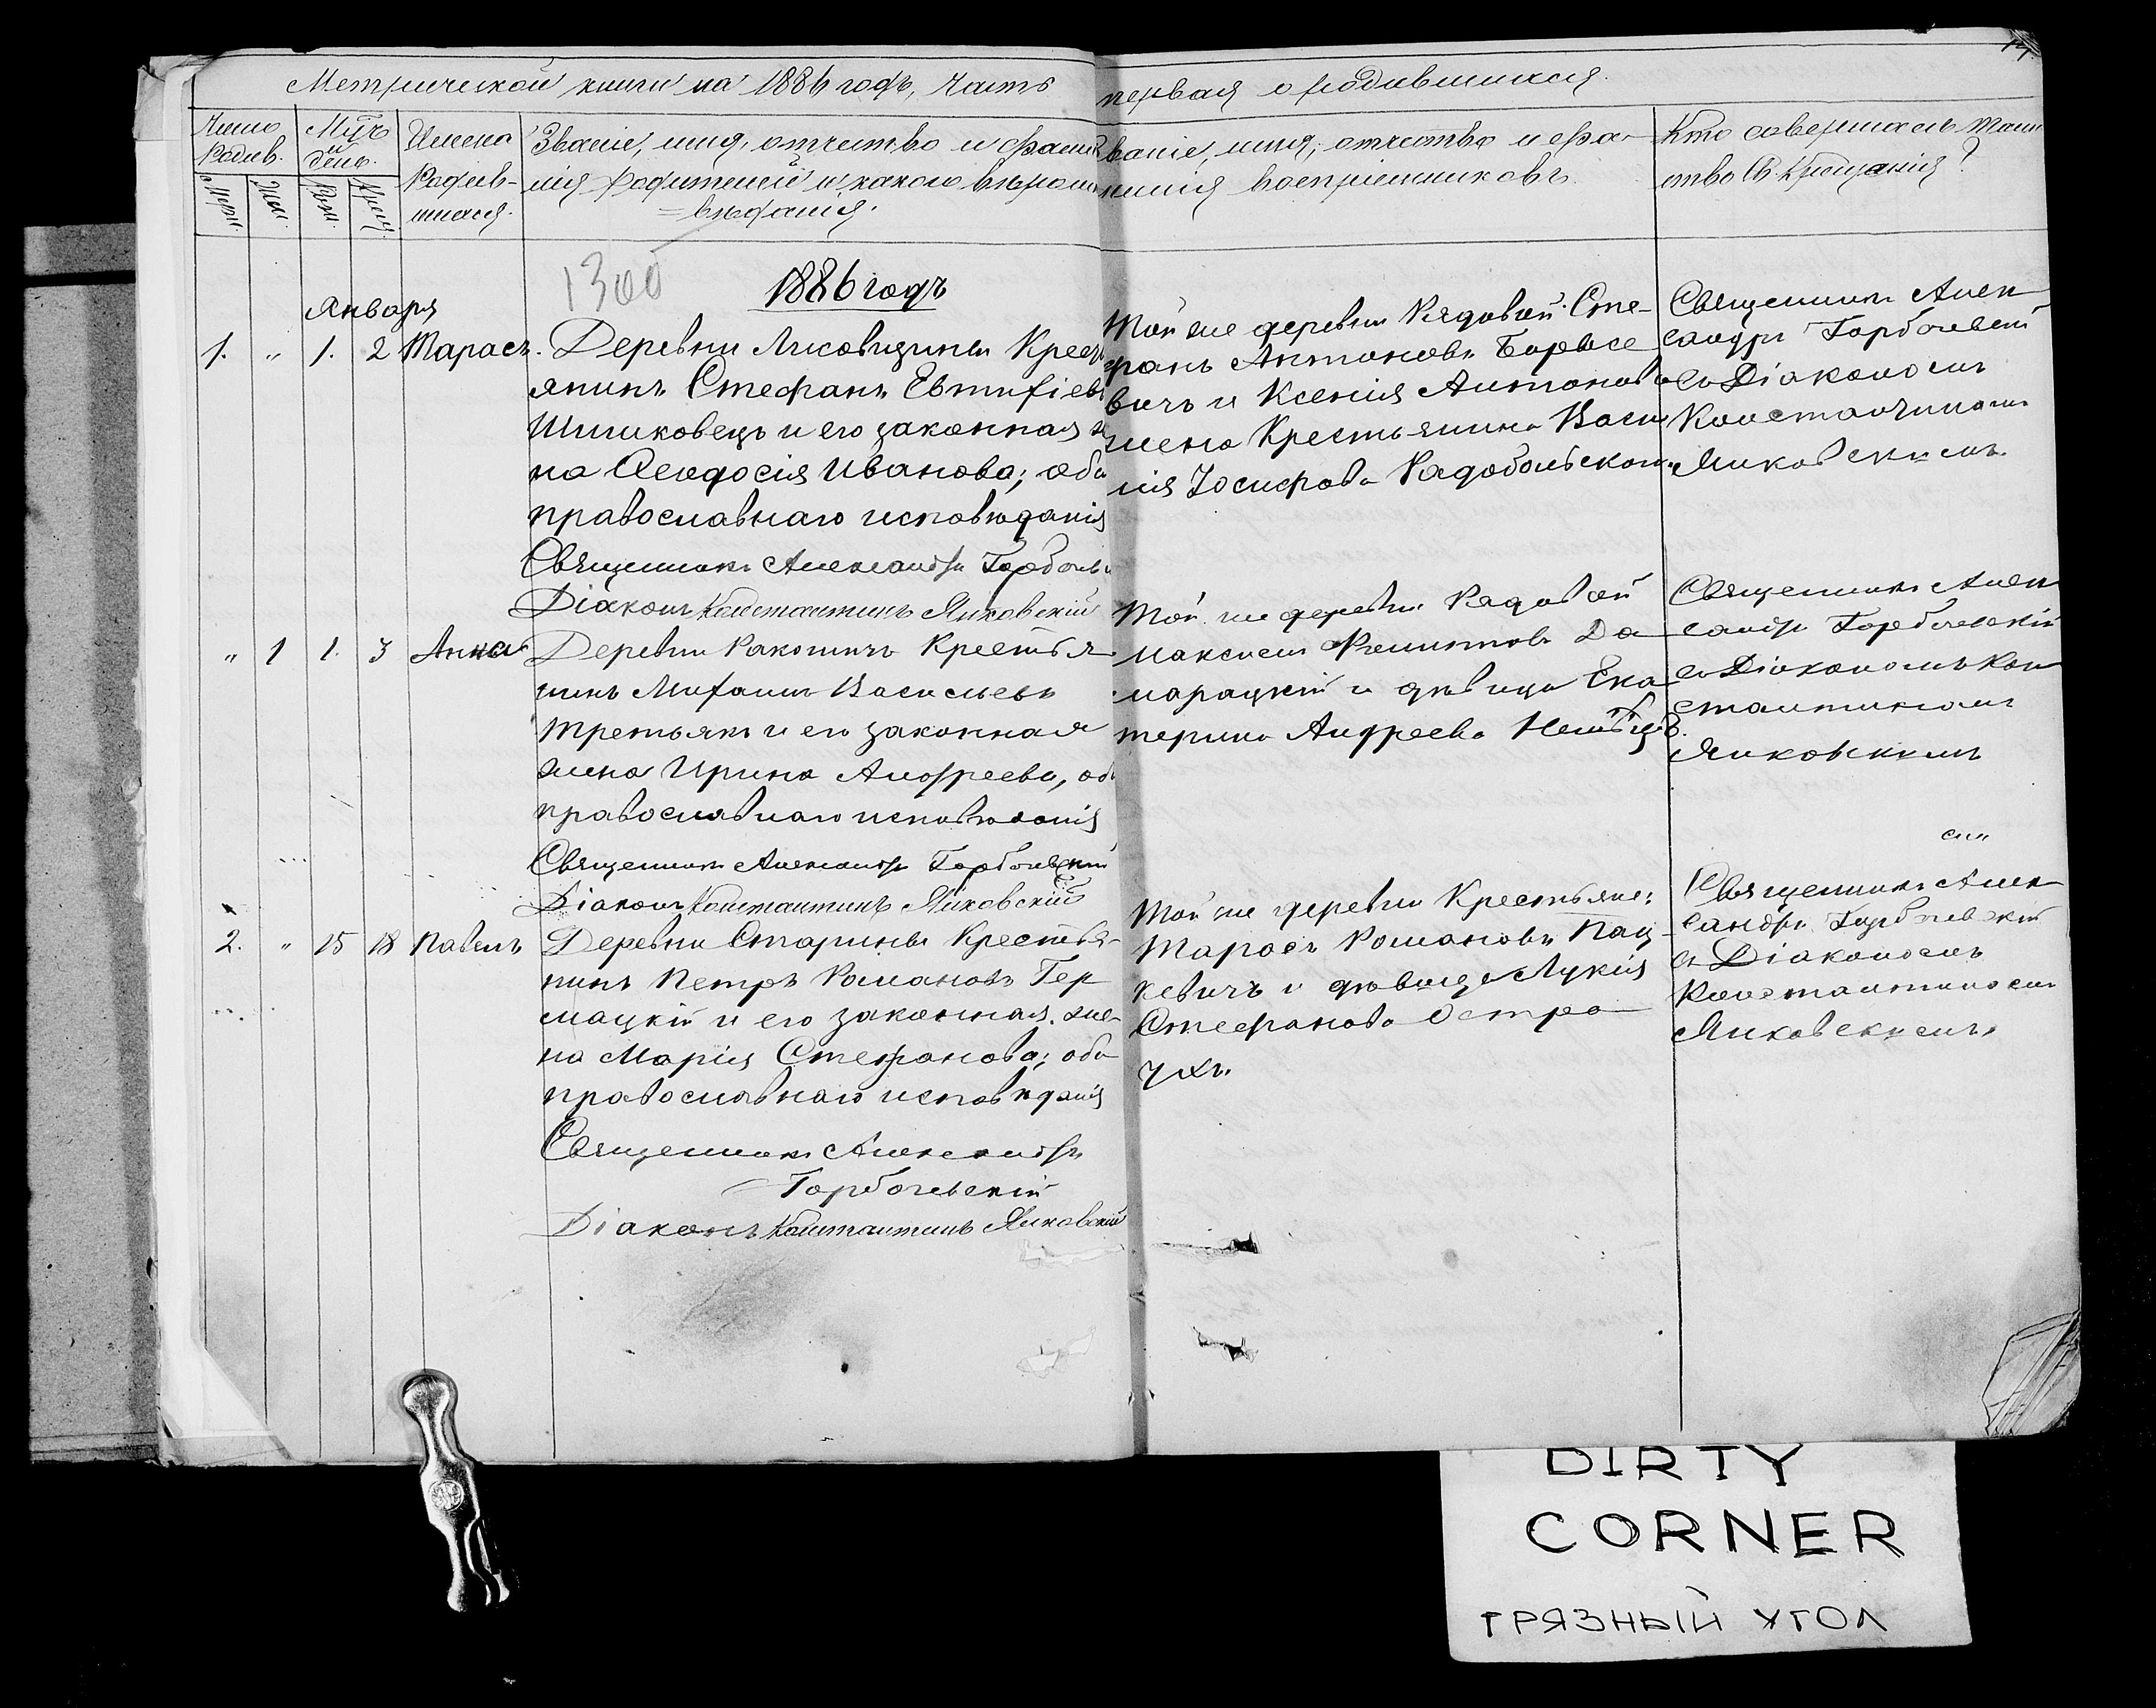 Метрической книги на 1886 годъ, часть первая о родившихся.
Число Родив.
Мѣсяцъ и день.
Имена Родив-
шихся.
Званіе, имя, отчество и фами
лія родителей и какого вѣроис
=вѣданія.
Званіе, имя, отчество и фа-
милія воспріемниковъ.
Кто совершалъ Таин
ство Св. Крещенія?
Муж.
Жен.
Рож.
Крещ.
1300
1886 годъ
Января
1. „ 1. 2 Тарасъ.
Деревни Лисовщины Крест
янинъ Стефанъ Евтифіев
Шишковецъ и его законная ж
на Феодосія Иванова; оба
православнаго исповѣданія
Священникъ Александръ Горбачевс
Діаконъ Константинъ Янковскій
Той же деревни Рядовой Сте-
фанъ Антоновъ Борисе
вичъ и Ксенія Антонова
жена Крестьянина Васи
лія Іосифова Радобольскаго
Священникъ Алек
сандръ Горбачевскій
съ Діакономъ
Константиномъ
Янковскимъ.
„ 1 1. 3 Анна
Деревни Ракотичъ Крестья-
нинъ Михаилъ Васильевъ
Третьякъ и его законная
жена Ирина Андреева, об
православнаго исповѣданія
Священникъ Александръ Горбачевскій
Діаконъ Константинъ Янковскій
Той же деревни Рядовой
Максимъ Филиповъ До
марацкій и дѣвица Ека
терина Андреева
Священникъ Алек
сандръ Горбачевскій
съ Діакономъ Кон
стантиномъ
Янковскимъ
2. „ 15 18 Павелъ
Деревни Старины Крестья-
нинъ Петръ Романовъ Гер
мацкій и его законная же-
на Марія Стефанова; оба
православнаго исповѣданія
Священникъ Александръ
Горбачевскій
Діаконъ Константинъ Янковскій
Той же деревни Крестьяне:
Тарасъ Романовъ Пац-
кевичъ и дѣвица Лукія
Стефанова Остро
ухъ.
Священникъ Алек
сандръ Горбачевскій
съ Діакономъ
Константиномъ
Янковскимъ
DIRTY
CORNER
ГРЯЗНЫЙ УГОЛ